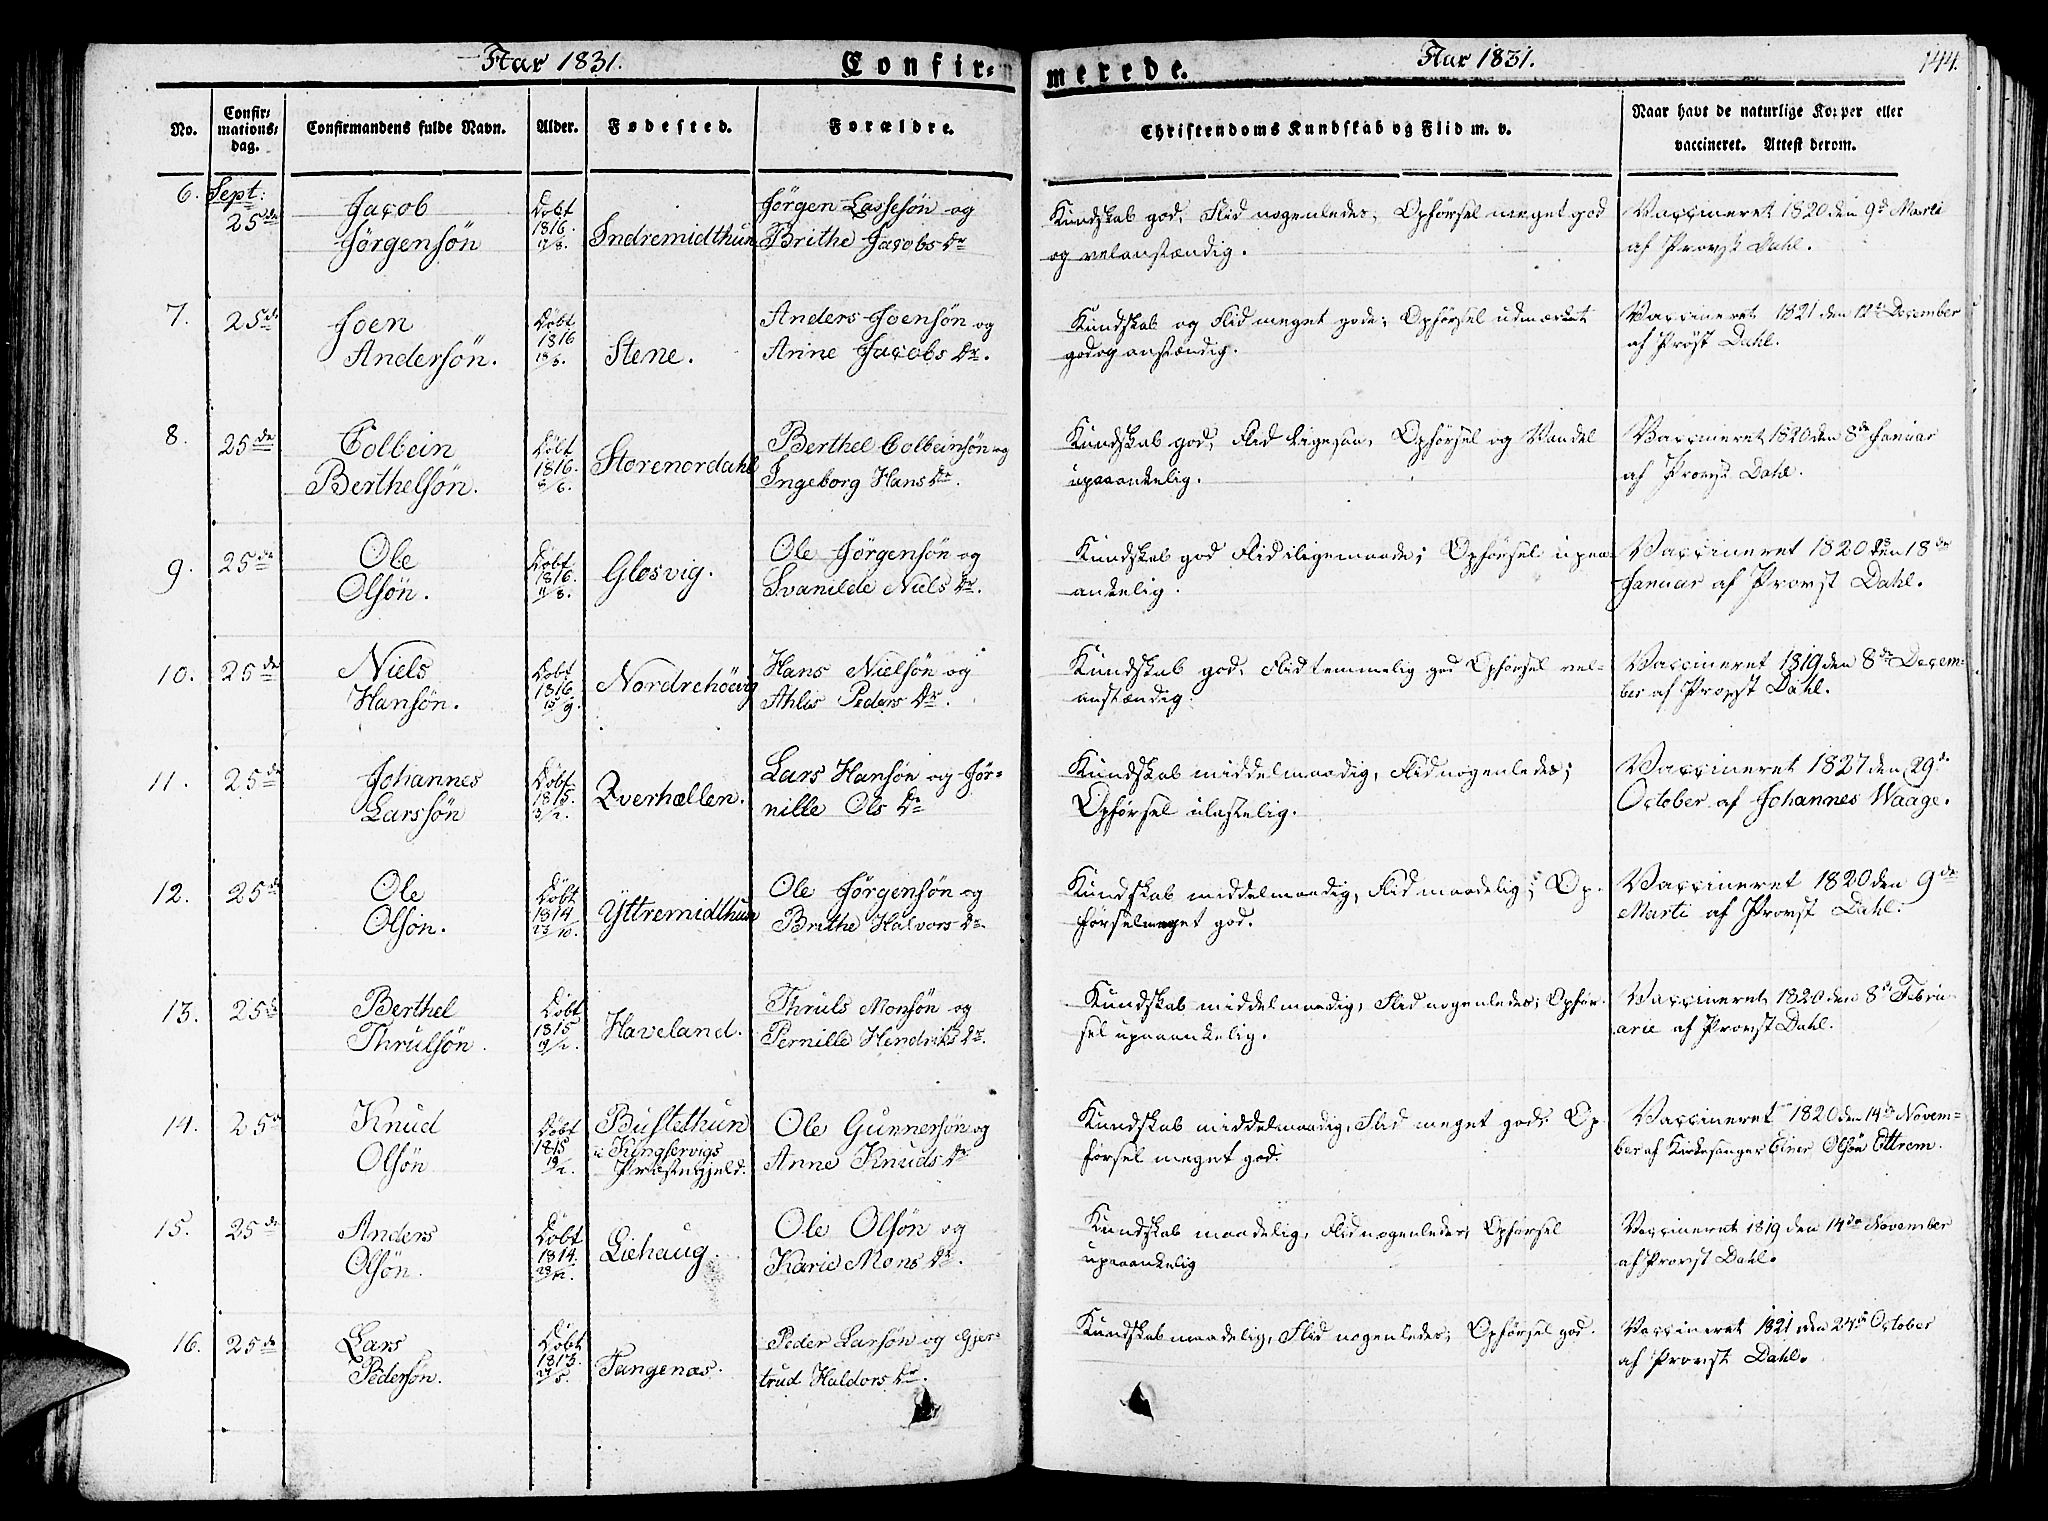 Aar 1831. Confir-
merede. Aar 1831. 144.
No. Confir-mations-dag. Confirmandens fulde Navn. Alder. Fødested. Forældre. Christendoms Kundskab og Flid m. v. Naar havt de naturlige Kopper eller vaccineret. Attest derom.
6. Sept: Jacob Døbt Jörgen Lassesön og Kundskab god, Flid nogenledes, Opförsel meget god Vaccineret 1820 den 9de Marti
25de Jörgensön 1816. Indremidthun Brithe Jacobs Dr og velanstændig. af Provst Dahl.
7. 25de Joen Døbt Anders Joensön og Kundskab og Flid meget gode; Opförsel udmærket Vaccineret 1821 den 12te December
Andersön. 1816 Stene. Anne Jacobs Dr. god og anstændig. af Pröst Dahl.
8. 25de Colbein Døbt Berthel Colbeinsön og Kundskab god, Flid ligesaa, Opförsel og Vandel Vaccineret 1820 den 8de Januar
Berthelsön. 1816. Storenordahl Ingeborg Hans Dr. upaaankelig. af Provst Dahl.
9. 25de Ole Døbt Ole Jörgensön og Kundskab god Flid iligemaade; Opförsel upaa- Vaccineret 1820 den 18de
Olsön. 1816. 11/8. Glosvig. Svanilde Niels Dr. ankelig. Januar af Provst Dahl.
10. 25de Niels Døbt Hans Nielsön og Kundskab god, Flid temmelig god Opförsel vel- Vaccineret 1819 den 8de Decem-
Hansön. 1816. 15/9. Nordrehöevig Ahlis Peders Dr. anstændig. ber af Provst Dahl.
11. 25de Johannes Døbt Lars Hansön og Jör- Kundskab middelmaadig, Flid nogenledes; Vaccineret 1827 den 29de
Larssön 1815. Qverhællen. nille Ols Dr Opförsel ulastelig. October af Johannes Waage.
12. 25de Ole Døbt Ole Jörgensön og Kundskab middelmaadig, Flid maadelig; Op- Vaccineret 1820 den 9de
Olsön. 1814 23/10. Yttremidthun Brithe Halvors Dr. förselmeget god. Marti af Provst Dahl.
13. 25de Berthel Døbt Thruls Monsön og Kundskab middelmaadig, Flid nogenledes; Opför- Vaccineret 1820 den 8de Febru-
Thrulsön. 1815 19/2. Haveland. Pernille Hendriks Dr. sel upaaankelig. arie af Provst Dahl.
14. 25de Knud Døbt Bustethun Ole Gunnersön og Kundskab middelmaadig, Flid meget gode Op- Vaccineret 1820 den 14de Novem-
Olsön 1815 19/2. i Kingservigs Anne Knuds Dr förse<br>l meget god. ber af Kirkesanger Einer Olsön Ettrem.
Præstegjeld.
15. 25de Anders Døbt Ole Olsön og Kundskab maadelig, Flid nogenledes, Opförsel Vaccineret 1819 den 14de November
Olsön. 1814. Liehaug. Karie Mons Dr. upaaankelig af Provst Dahl.
16. 25de Lars Døbt Peder Larsön og Gjer- Kundskab maadelig, Flid nogenledes, Opförsel god. Vaccineret 1821 den 24de October
Pedersön. 1813. Tangenæs. trud Haldors Dr. af Provst Dahl.